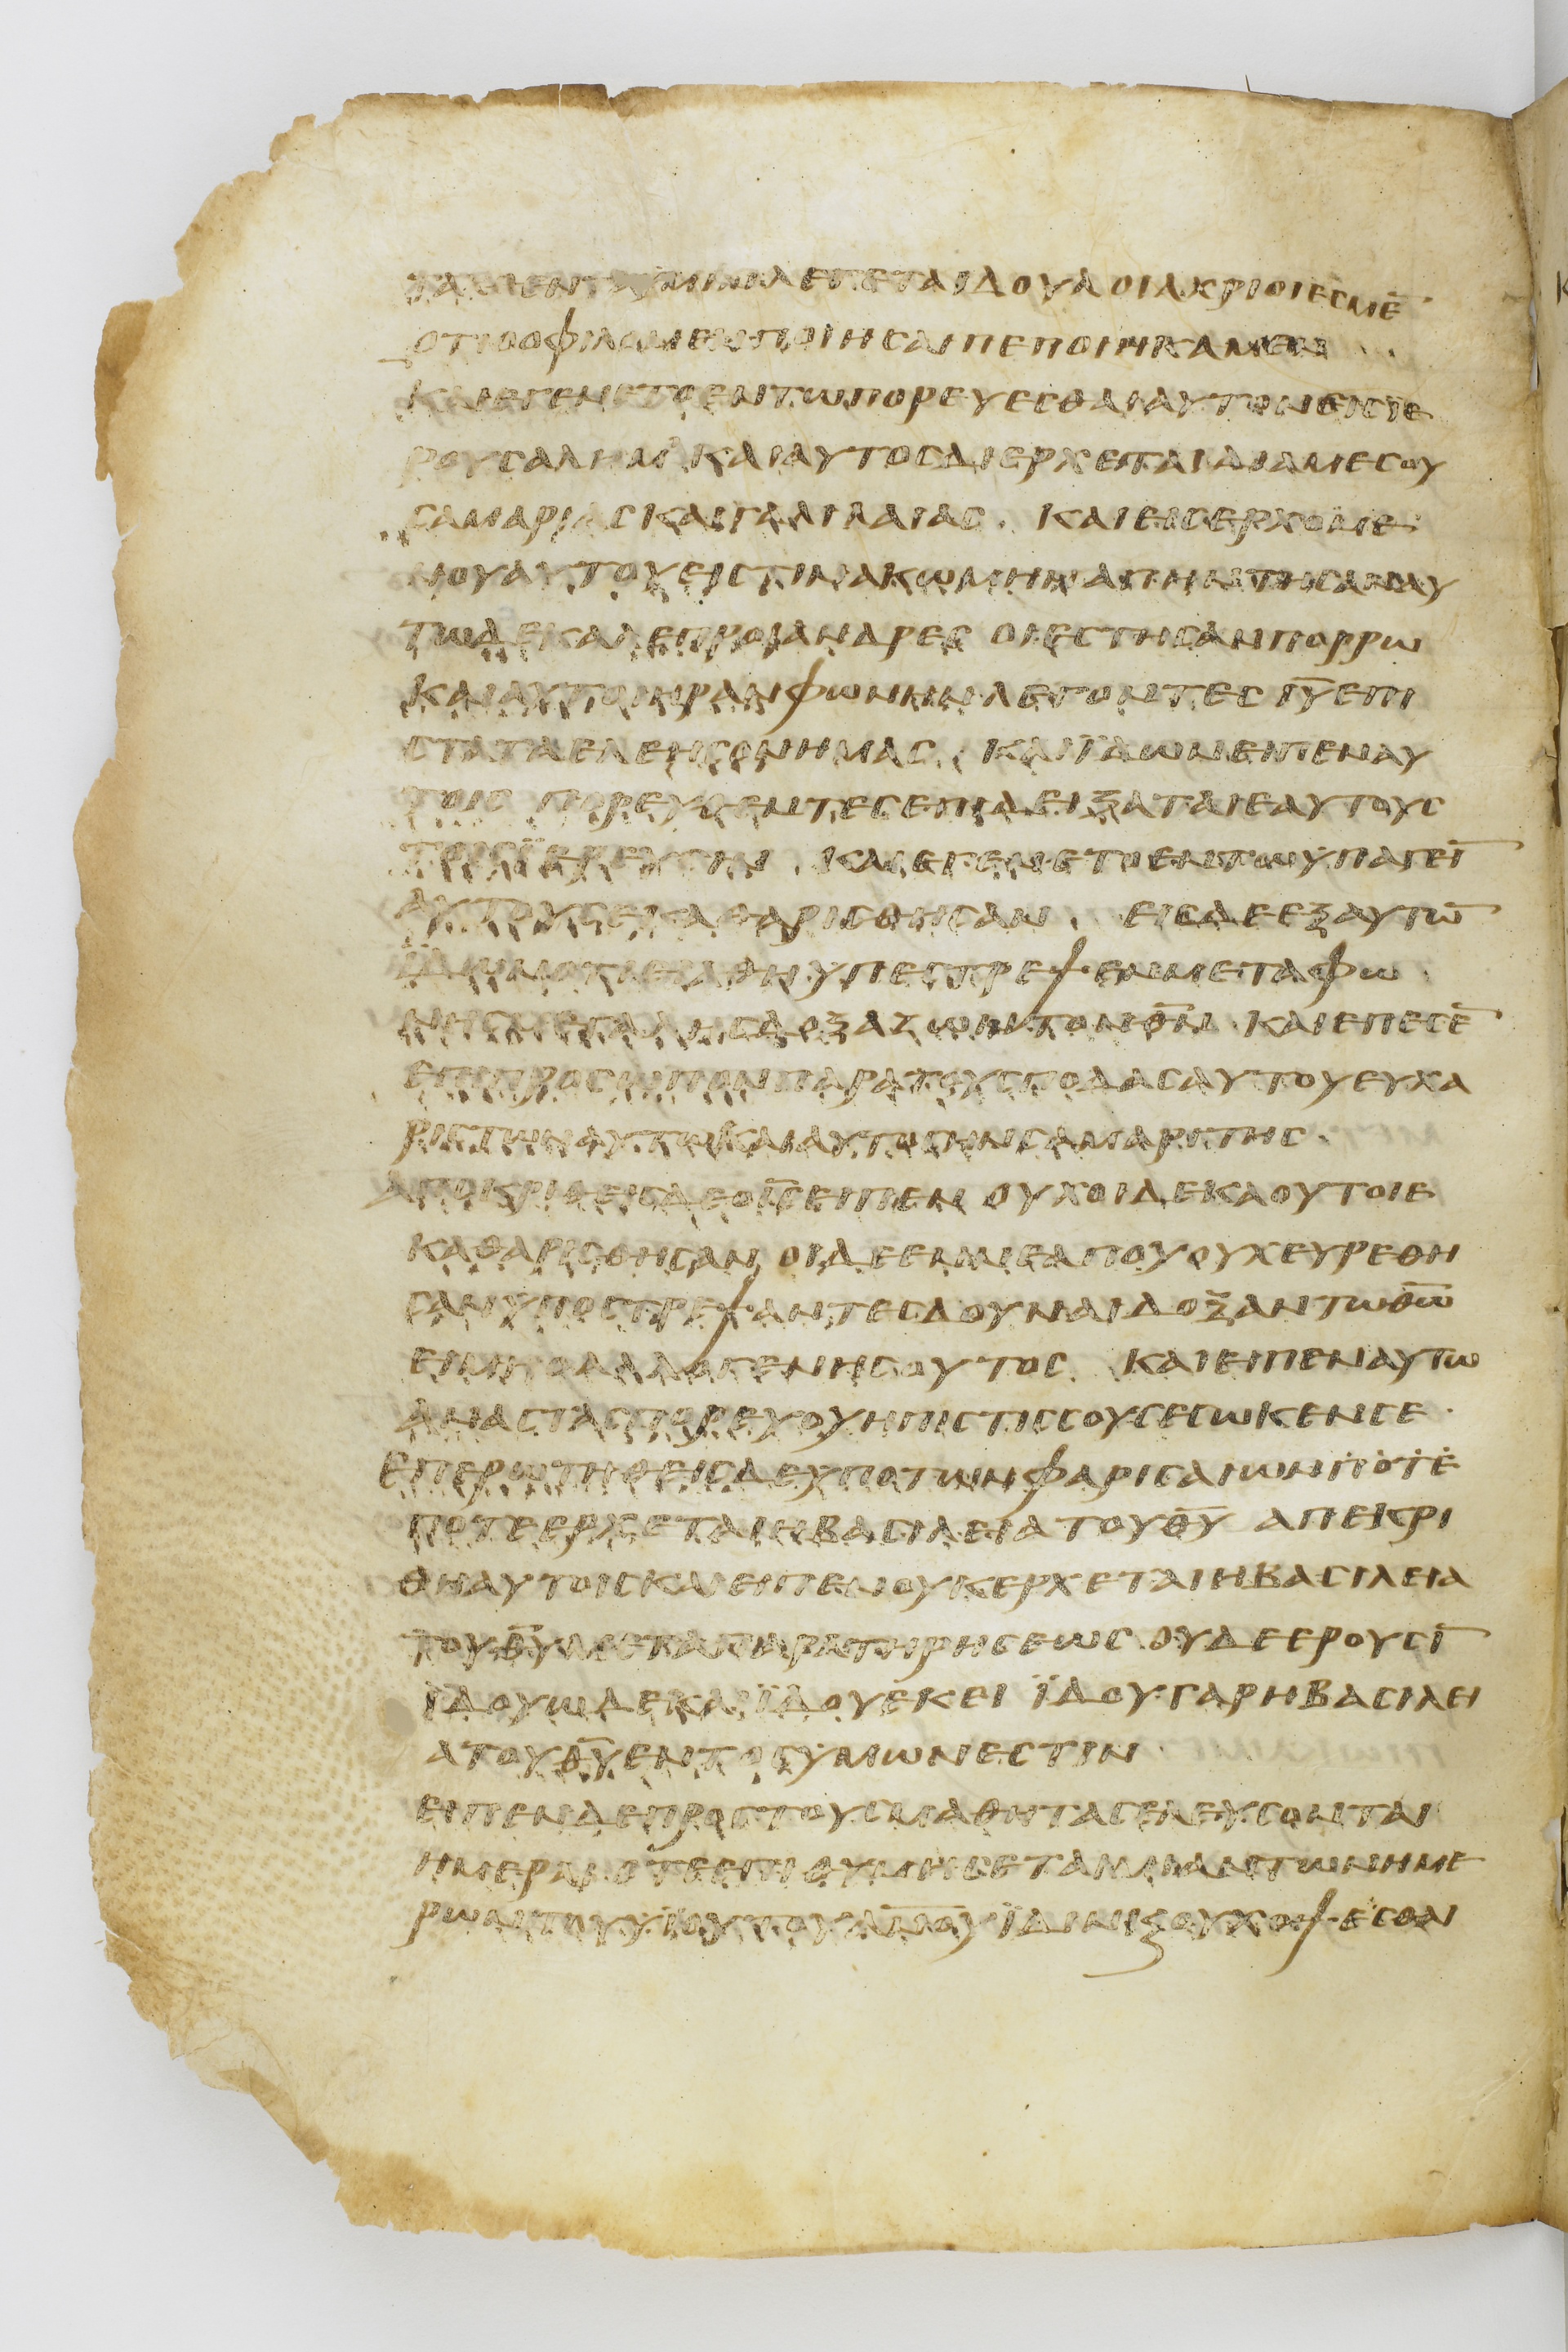 ΤΑΧΘΕΝΤΑΥΜΙΝΛΕΓΕΤΑΙΔΟΥΛΟΙΑΧΡΙΟΙΕCΜΕ̄
ΟΤΙΟΦΙΛΟΜΕΝΠΟΙΗCΑΙΠΕΠΟΙΗΚΑΜΕΝ
ΚΑΙΕΓΕΝΕΤΟΕΝΤΩΠΟΡΕΥΕCΘΑΙΑΥΤΟΝΕΝΙΕ
ΡΟΥCΑΛΗΜΚΑΙΑΥΤΟCΔΙΕΡΧΕΤΑΙΔΙΑΜΕCΟΥ
CΑΜΑΡΙΑCΚΑΙΓΑΛΙΛΑΙΑC. ΚΑΙΕΙCΕΡΧΟΜΕ
ΝΟΥΑΥΤΟΥΕΙCΤΙΝΑΚΩΜΗΝΑΠΗΝΤΗCΑΝΑΥ
ΤΩΔΕΚΑΛΕΠΡΟΙΑΝΔΡΕC ΟΙΕCΤΗCΑΝΠΟΡΡΩ
ΚΑΙΑΥΤΟΙΗΡΑΝΦΩΝΗΝ ΛΕΓΟΝΤΕCΙ̅Υ̅ΕΠΙ
CΤΑΤΑΕΛΕΗCΟΝΗΜΑC. ΚΑΙΪΔΩΝΕΙΠΕΝΑΥ
ΤΟΙCΠΟΡΕΥΘΕΝΤΕCΕΠΙΔΕΙΞΑΤΑΙΕΑΥΤΟΥC
ΤΟΙCΪΕΡΕΥCΙΝ ΚΑΙΕΓΕΝΕΤΟΕΝΤΩΥΠΑΓΕῙ
ΑΥΤΟΥCΕΚΑΘΑΡΙCΘΗCΑΝ. ΕΙCΔΕΕΞΑΥΤΩ̄
ΪΔΩΝΟΤΙΕΙΑΘΗΥΠΕCΤΡΕΨΕΝΜΕΤΑΦΩ
ΝΗCΜΕΓΑΛΗCΔΟΞΑΖΩΝΤΟΝΘ̅Ν̅. ΚΑΙΕΠΕCΕ̄
ΕΠΙΠΡΟCΩΠΟΝΠΑΡΑΤΟΥCΠΟΔΑCΑΥΤΟΥΕΥΧΑ
ΡΙCΤΩΝΑΥΤΩΚΑΙΑΥΤΟCΗΝCΑΜΑΡΙΤΗC.
ΑΠΟΚΡΙΘΕΙCΔΕΟΙ̅C̅ΕΙΠΕΝ ΟΥΧΟΙΔΕΚΑΟΥΤΟΙΕ
ΚΑΘΑΡΙCΘΗCΑΝ ΟΙΔΕΕΝΝΕΑΠΟΥΟΥΧΕΥΡΕΘΗ
CΑΝΥΠΟCΤΡΕΨΑΝΤΕCΔΟΥΝΑΙΔΟΞΑΝΤΩΘ̅Ω̅
ΕΙΜΗΟΑΛΛΟΓΕΝΗCΟΥΤΟC. ΚΑΙΕΙΠΕΝΑΥΤΩ
ΑΝΑCΤΑCΠΟΡΕΥΟΥΗΠΙCΤΙCCΟΥCΕCΩΚΕΝCΕ.
ΕΠΕΡΩΤΗΘΕΙCΔΕΥΠΟΤΩΝΦΑΡΙCΑΙΩΝΠΟΤΕ
ΠΟΤΕΕΡΧΕΤΑΙΗΒΑCΙΛΕΙΑΤΟΥΘ̅Υ̅ ΑΠΕΚΡΙ
ΘΗΑΥΤΟΙCΚΑΙΕΙΠΕΝΟΥΚΕΡΧΕΤΑΙΗΒΑCΙΛΕΙΑ
ΤΟΥΘ̅Υ̅ΜΕΤΑΠΑΡΑΤΗΡΗCΕΩC. ΟΥΔΕΕΡΟΥCῙ
ΪΔΟΥΩΔΕΚΑΙΪΔΟΥΕΚΕΙ ΪΔΟΥΓΑΡΗΒΑCΙΛΕΙ
ΑΤΟΥΘ̅Υ̅ΕΝΤΟCΥΜΩΝΕCΤΙΝ
ΕΙΠΕΝΔΕΠΡΟCΤΟΥCΜΑΘΗΤΑCΕΛΕΥCΟΝΤΑΙ
ΗΜΕΡΑΙΟΤΕΕΠΙΘΥΜΗCΕΤΑΙΜΙΑΝΤΩΝΗΜΕ
ΡΩΝΤΟΥΥΙΟΥΤΟΥΑ̅Ν̅Ο̅Υ̅ΪΔΙΝΚΑΙΟΥΚΟΨΕCΘΑΙ